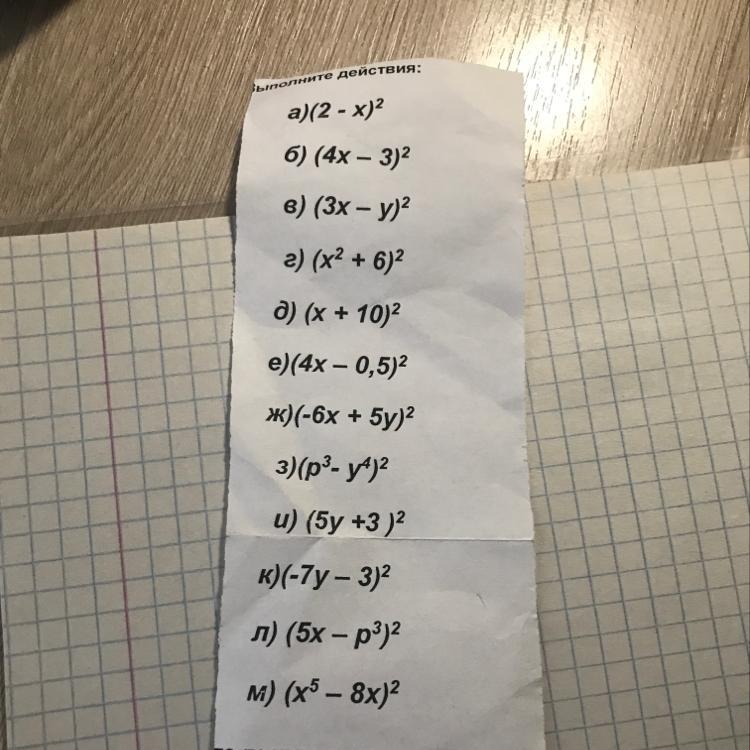 Выполните действия:
а)(2 - x)²
б) (4x – 3)²
в) (3x – y)²
г) (x² + 6)²
д) (x + 10)²
е)(4x – 0,5)²
ж)(-6x + 5y)²
з)(p³- y⁴)²
и) (5y +3 )²
к)(-7y – 3)²
л) (5x – p³)²
м) (x⁵ – 8x)²